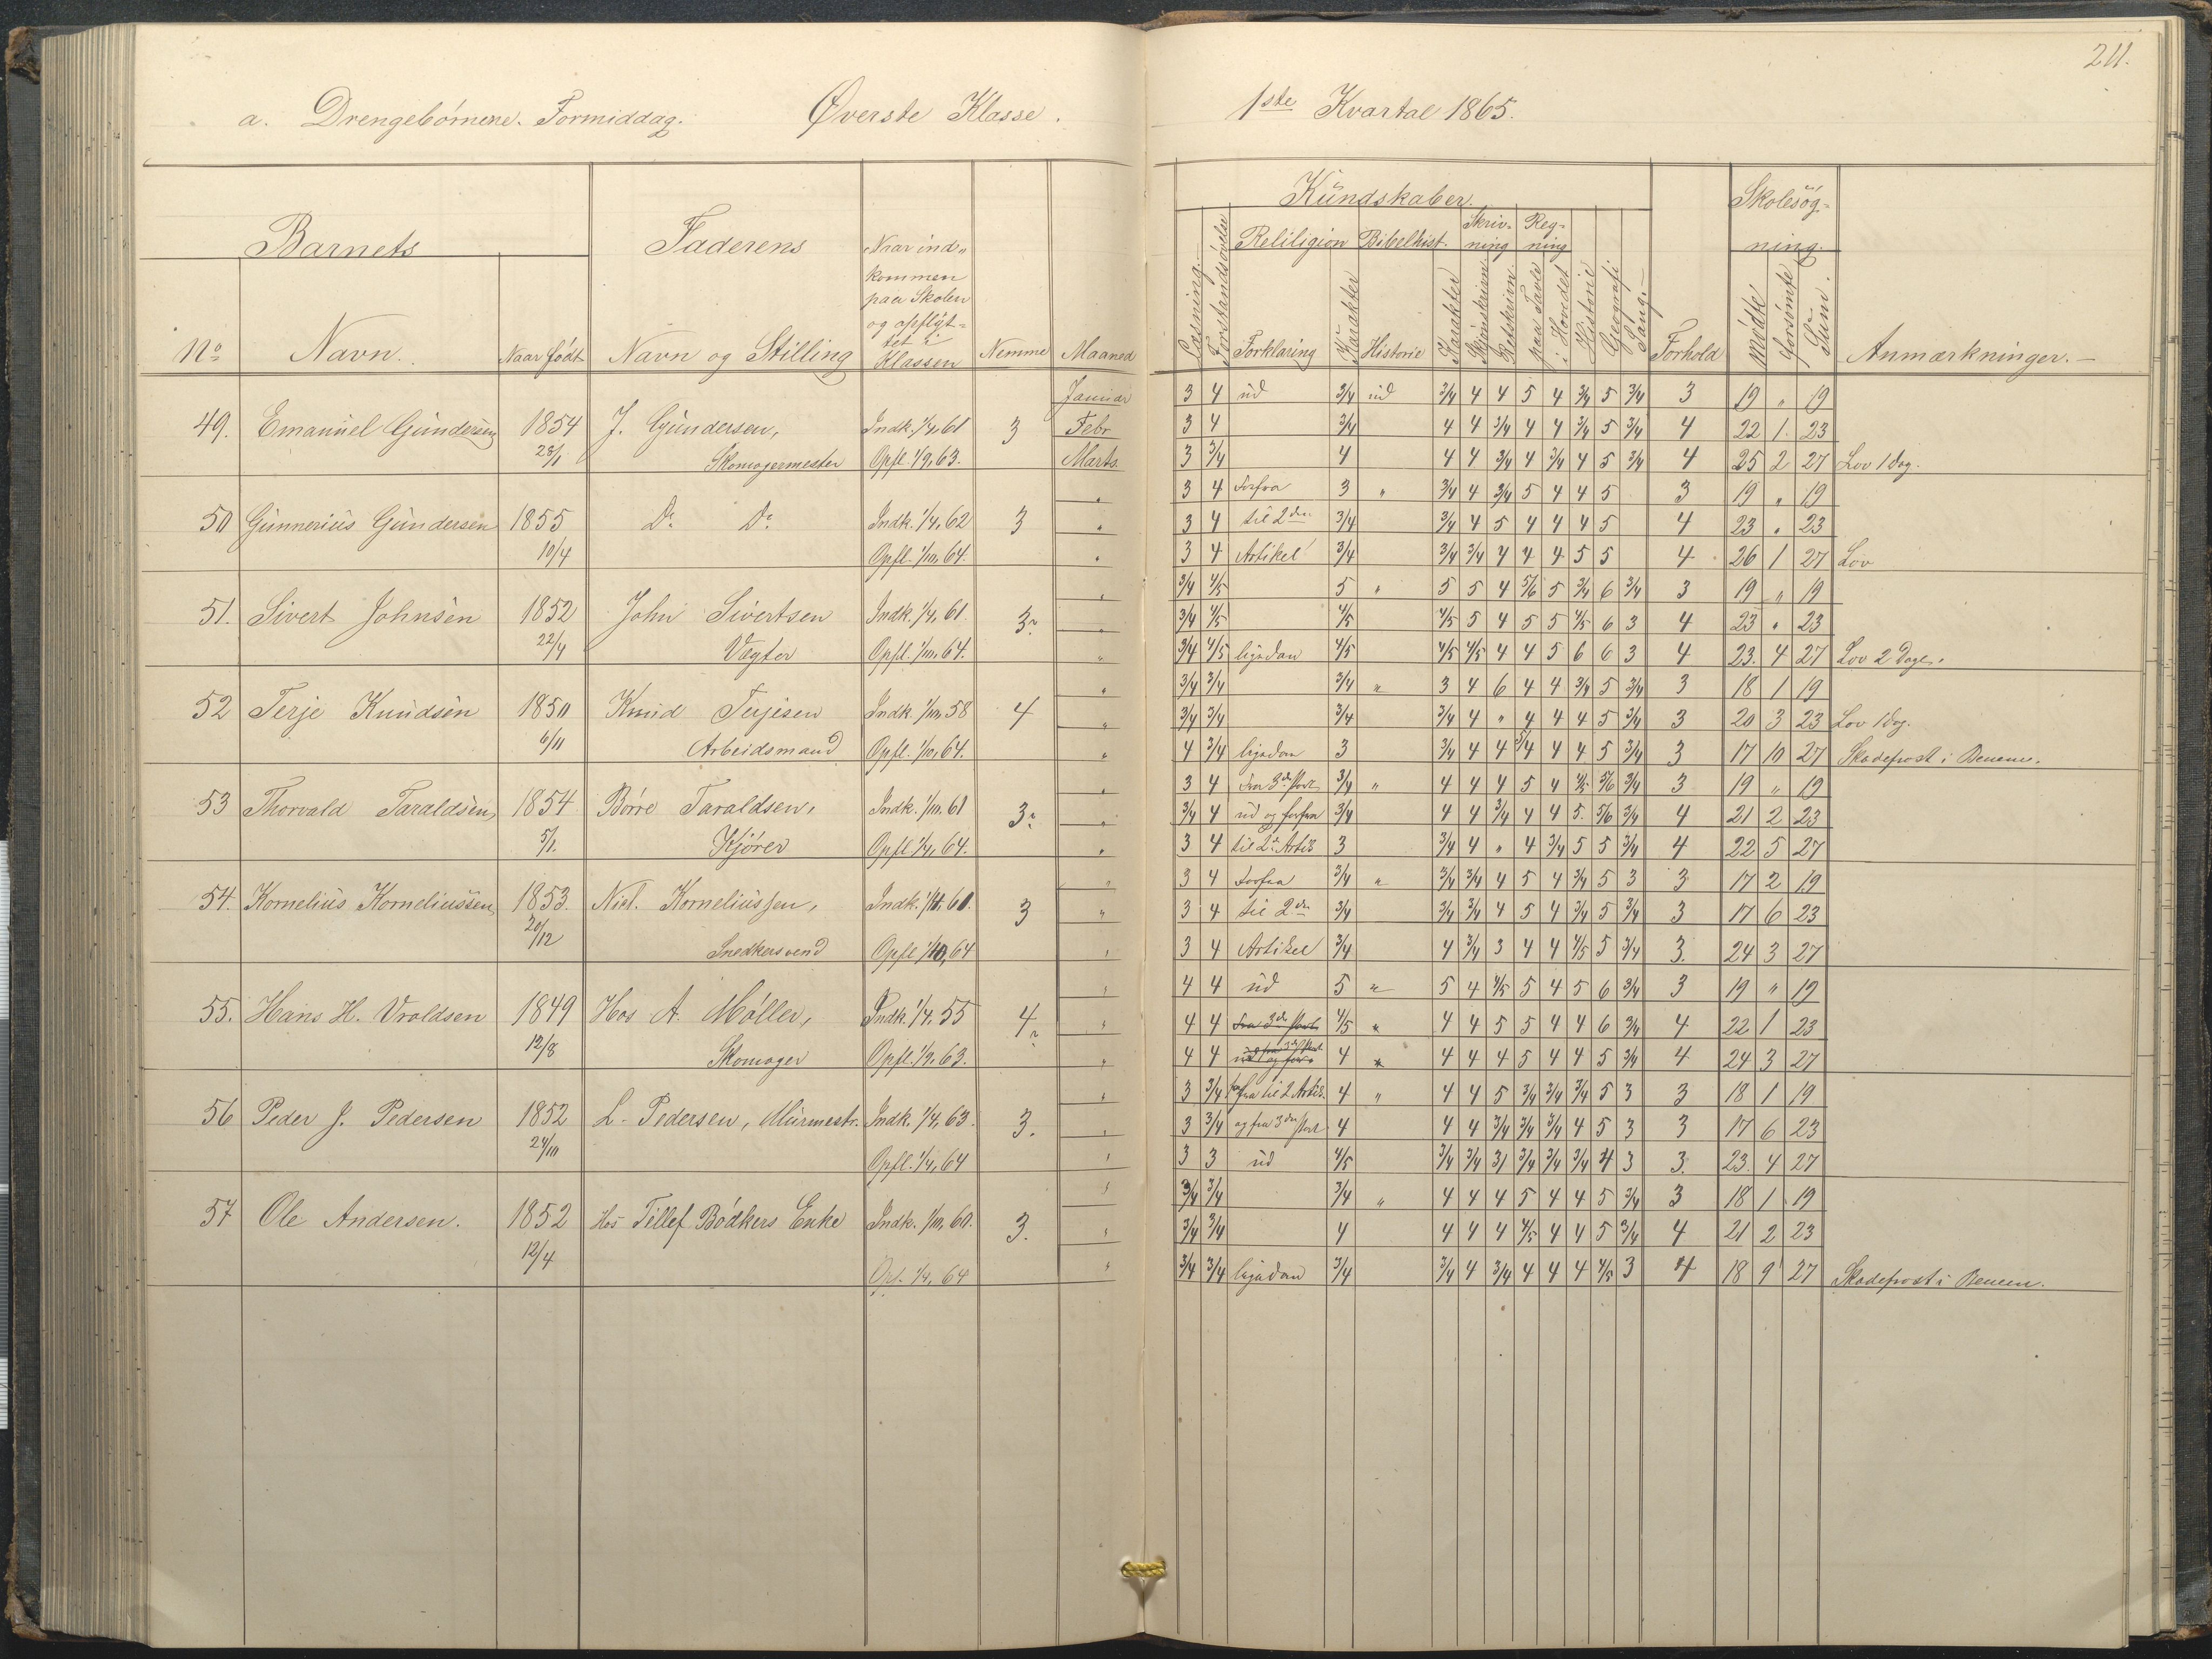 211.
a. Drengebörnene. Formiddag. Øverste Klasse. 1ste Kvartal 1865.
Barnets Faderens Naar ind„ Kundskaber. Skolesög=
kommen Læsning. Forstandsövelse Reliligion Bibelhist. Skriv- Reg- ning.
paa Skolen ning ning
og opflyt=
tet i
No Navn. Naar født Navn og Stilling Klassen Nemme Maaned Forklaring Karakter Historie Karakter Skjönskrivn Retskrivn paa Tavle i Hovedet Historie Geografi Sang. Forhold Mödte forsömte Sum. Anmærkninger.
Januar 3 4 ud 3/4 ud 3/4 4 4 5 4 3/4 5 3/4 3 19 „ 19
49. Emanuel Gundersen 1854 J. Gundersen, Indk. 1/4, 61 3 Febr 3 4 3/4 4 4 3/4 4 4 3/4 5 3/4 4 22 1 23
28/1 Skomagermester Opfl. 1/9, 63. Marts. 3 3/4 4 4 4 3/4 4 3/4 4 5 3/4 4 25 2 27 Lov 1 Dag.
„ 3 4 Forfra 3 „ 3/4 4 3/4 5 4 4 5 3 19 „ 19
50 Gunnerius Gundersen 1855 Do Do Indk. 1/4, 62 3 „ 3 4 til 2den 3/4 3/4 4 5 4 4 4 5 4 23 „ 23
10/4 Opfl. 1/10, 64. „ 3 4 Artikel 3/4 3/4 3/4 4 4 4 5 5 4 26 1 27 Lov
„ 3/4 4/5 5 „ 5 5 4 5/6 5 3/4 6 3/4 3 19 „ 19
51. Sivert Johnsen 1852 John Sivertsen Indk. 1/4, 61 3. „ 3/4 4/5 4/5 4/5 5 4 5 5 4/5 6 3 4 23 „ 23
22/4 Vægter Opfl. 1/10, 64. „ 3/4 4/5 ligedan 4/5 4/5 4/5 4 4 5 6 6 3 4 23. 4 27 Lov 2 Dage.
„ 3/4 3/4 3/4 „ 3 4 6 4 4 3/4 5 3/4 3 18 1 19
52 Terje Knudsen 1850 Knud Terjesen Indk. 1/10, 58 4 „ 3/4 3/4 3/4 3/4 4 „ 4 4 4 5 3/4 3 20 3 23 Lov 1 Dag.
6/11 Arbeidsmand Opfl. 1/10, 64. „ 4 3/4 ligedan 3 3/4 4 4 3/4 4 4 5 3/4 3 17 10 27 Skadefrost i Benene.
„ 3 4 Fra 3die Part 3/4 „ 4 4 4 5 4 4/5 5/6 3/4 3 19 „ 19
53 Thorvald Taraldsen 1854 Börre Taraldsen, Indk. 1/10, 61 3. „ 3/4 4 ud og forfra 3/4 4 4 3/4 4 4 5. 5/6 3/4 4 21 2 23
5/1. Kjörer Opfl. 1/4, 64. „ 3 4 til 2. Artik 3 3/4 4 „ 4 3/4 5 5 3/4 4 22 5 27
„ 3 4 Forfra 3/4 „ 3/4 3/4 4 5 4 3/4 5 3 3 17 2 19
54. Kornelius Korneliussen 1853. Niel. Korneliussen, Indk. 1/10, 60. 3 „ 3 4 til 2den 3/4 3/4 3/4 4 5 4 3/4 5 3/4 3 17 6 23
20/12 Snedkersvend Opfl. 1/10, 64 „ 3 4 Artikel 3/4 4 3/4 3 4 4 4/5 5 3/4 3. 24 3 27
„ 4 4 ud 5 „ 5 4 4/5 5 4 5 6 3/4 3 19 „ 19
55. Hans H. Vroldsen 1849 Hos A. Möller, Indk. 1/4, 55 4. „ 4 4 Fra 3die Part 4/5 „ 4 4 5 5 4 4 6 3/4 4 22 1 23
12/8 Skomager Opfl. 1/9, 63. „ 4 4 4 „ 4 4 4 5 4 4 5 3/4 4 24 3 27
„ 3 3/4 forfra til 2 Artik. 4 „ 4 4 5 3/4 3/4 3/4 5 3 3 18 1 19
56 Peder J. Pedersen 1852 L. Pedersen, Murmestr. Indk. 1/4, 63. 3. „ 3 3/4 og fra 3die Part 4 4 4 3/4 3/4 3/4 4 5 3 3 17 6 23
24/10 Opfl. 1/4, 64 „ 3 3 ud 4/5 3/4 3/4 3/ 3/4 3/4 3/4 4 3 3. 23. 4 27
„ 3/4 3/4 3/4 „ 4 4 4 5 4 4 5 3/4 3 18 1 19
57 Ole Andersen. 1852 Hos Tellef Bödkers Enke Indk. 1/10, 60. 3. „ 3/4 3/4 4 4 4 4 4/5 4 4 5 3/4 4 21 2 23
12/4 Op. 1/4, 64 „ 3/4 3/4 ligedan 3/4 3/4 4 3/4 4 4 4 4/5 3 4 18 9 27 Skadefrost i Benene.